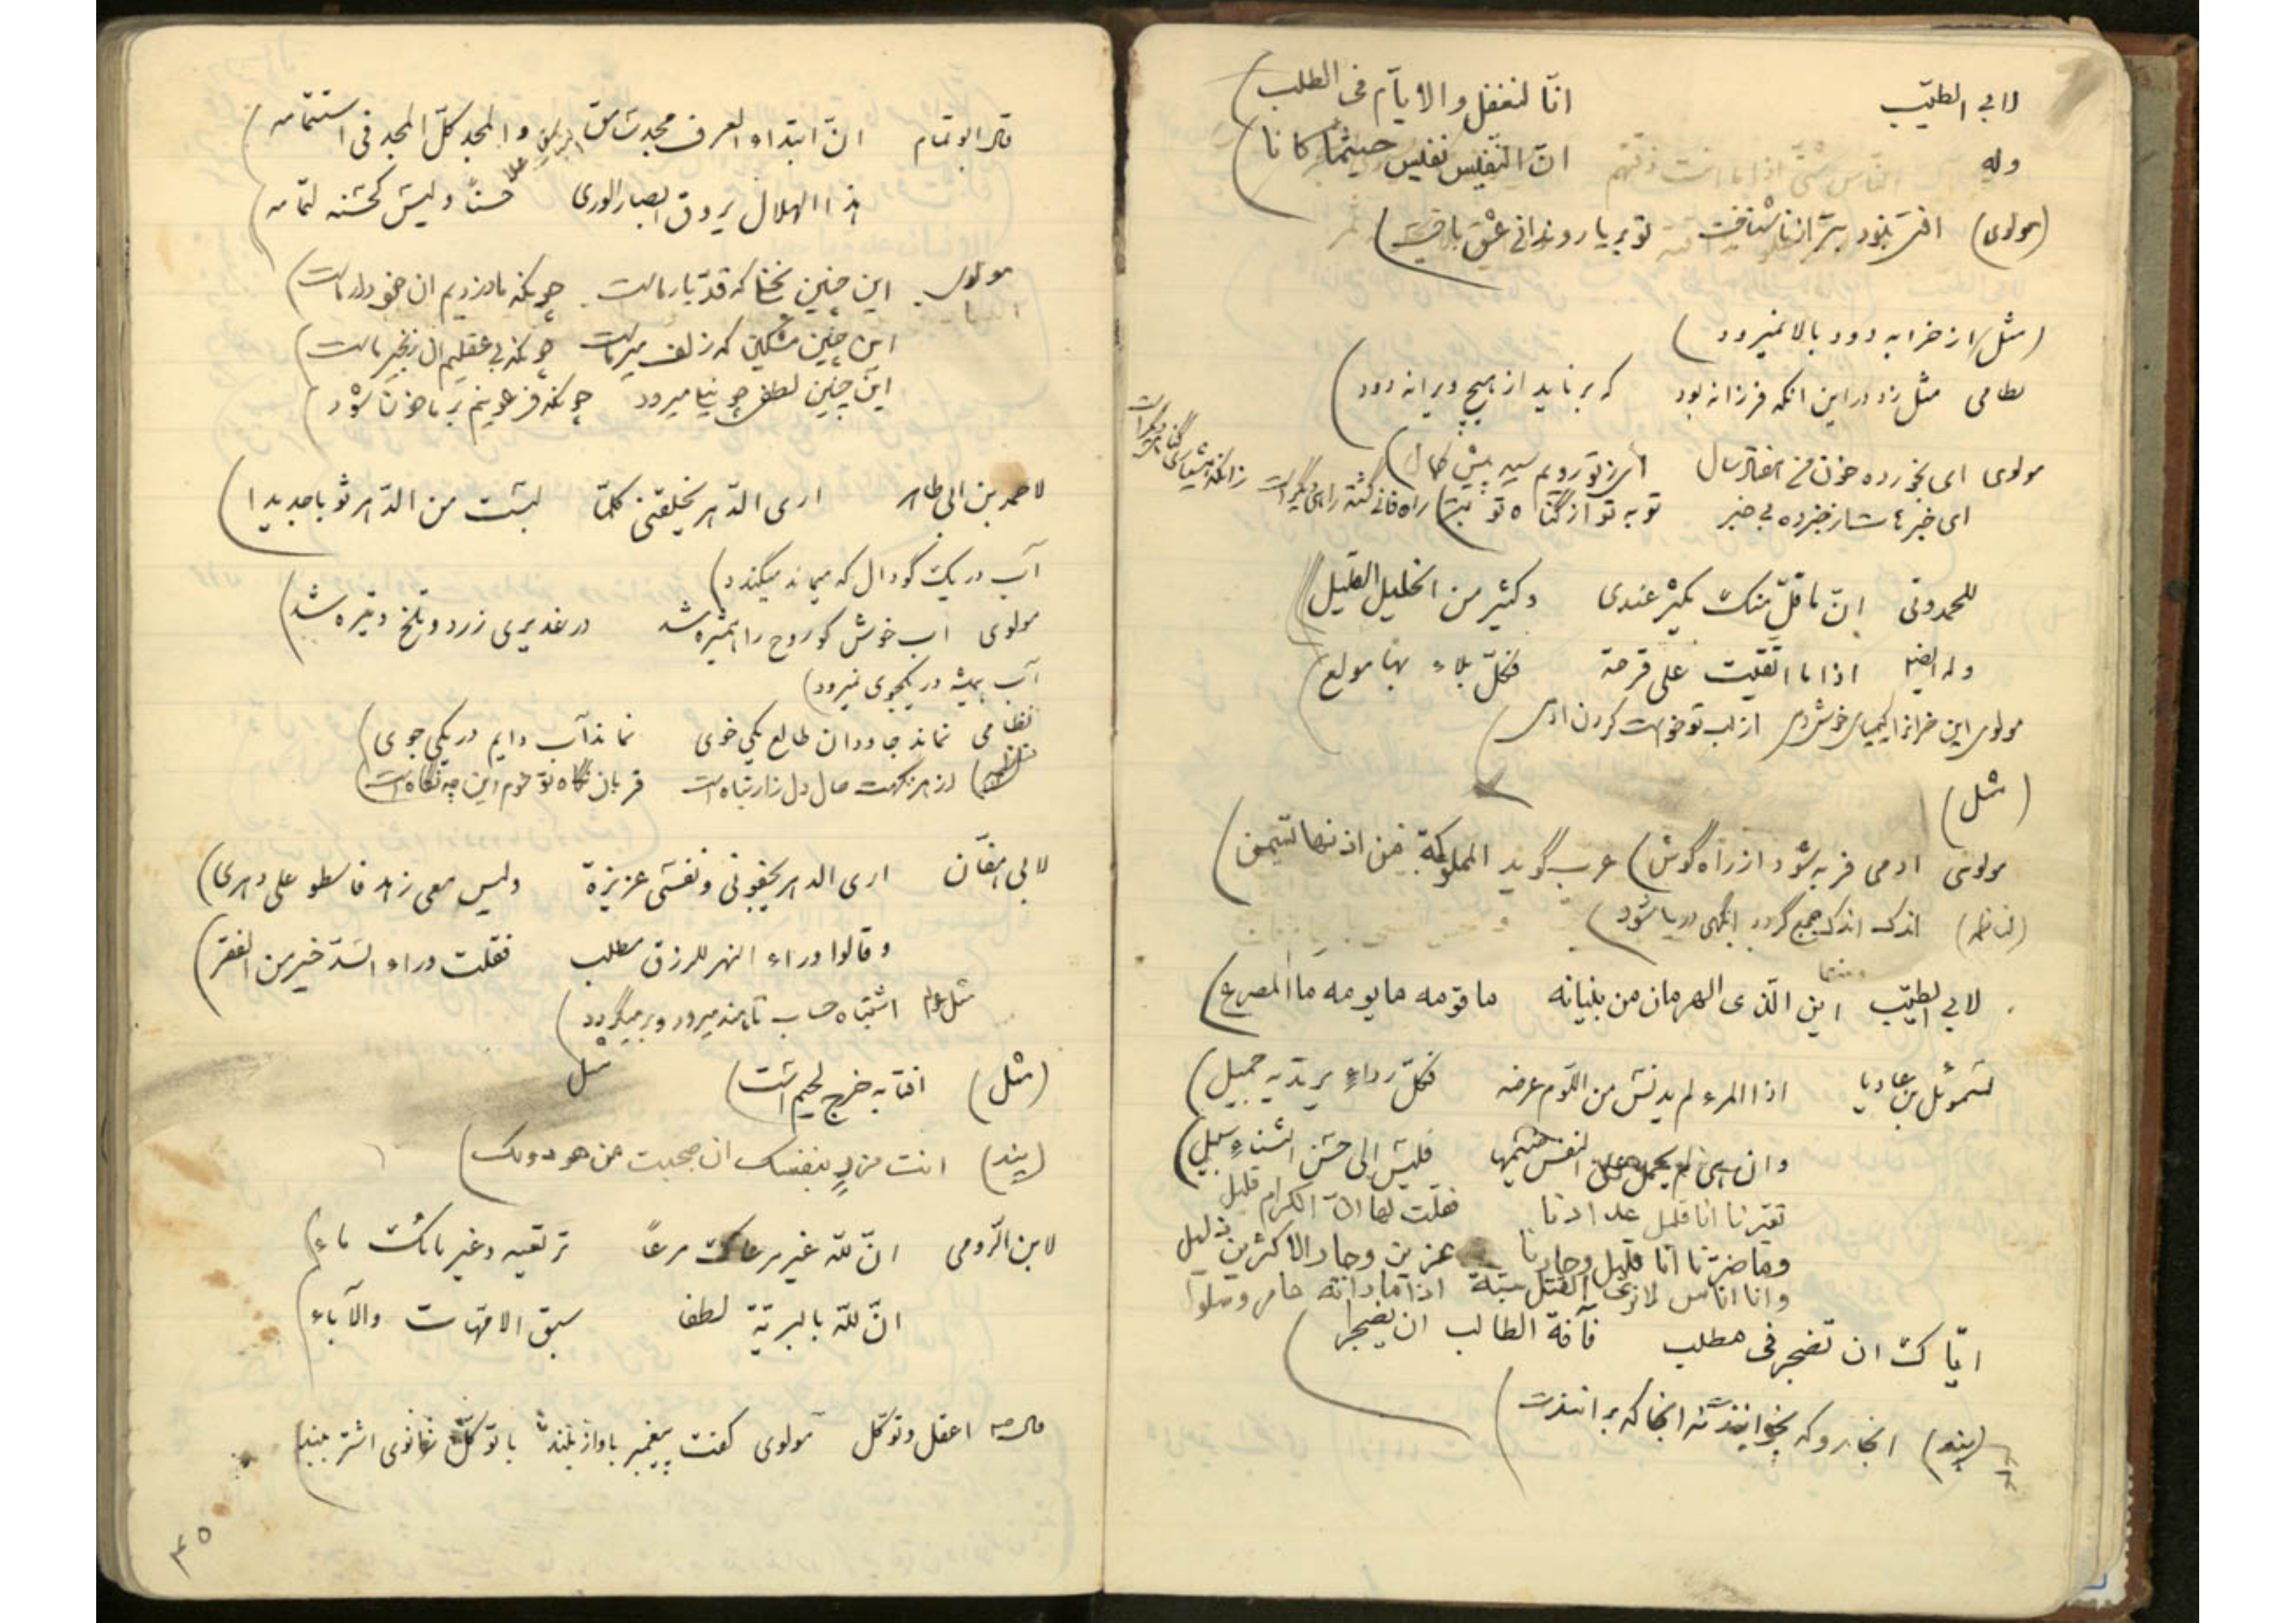 لابی الطیّب انّا لنغفل والایّام فی الطلب
وله انّ النّفیس نفیس حیثما کانا
(مولوی)
(مثل) از خرابه دود بالا نمیرود
نظامی مثل زد در این انکه فرزانه بود که بر ناید از هیچ ویرانه دود
مولوی ای بخورده خون من هفتاد سال ای ز تو رویم سیه پیش کمال
ای خبرهات از خبرده بی خبر توبه تو از گناه تو بتر
راه فانی گشته راهی دیگر است
زانکه هشیاری گناهی دیگر است
للحمدونی انّ ما قلّ منک یکثر عندی وکثیر من الخلیل القلیل
وله ایضا اذا ما اتّقیت علی قرحة فکلّ بلاء بها مولع
مولوی
(مثل)
مولوی ادمی فربه شود از راه گوش) عرب گوید المملوکة من اذنها تسمن
اندک اندک جمع گردد انگهی دریا شود
ومنها
لابی الطیّب این الّذی الهرمان من بنیانه ما قومه ما یومه ما المصرع
لسموئل بن عادیا اذا المرء لم یدنس من اللوم عرضه فکلّ رداءٍ یرتدیه جمیل
وان هی لم یحمل علی النفس ضیمها فلیس الی حسن الثناءِ سبیل
تعیّرنا انا قلیل عدادنا فقلت لها انّ الکرام قلیل
وما ضرّنا انا قلیل وجارنا عزیز وجار الاکثرین ذلیل
وانا اناس لانری القتل سبّة اذا ما راته عامر وسلول
ایّاک ان تضجر فی مطلب فآفة الطالب ان یضجرا
(پند) انجا رو که بخوانندت نه انجا که برانندت
قال ابوتمام انّ ابتداء العرف مجد باسق والمجد کلّ المجد فی استتمامه
هذا الهلال یروق ابصار الوری حسناً ولیس کحسنه لتمامه
مولوی این چنین نخلی که قدّ یار ماست چونکه ما دزدیم ان خود دار ماست
این چنین مشکین که زلف میر ماست چونکه بی عقلیم ان زنجیر ماست
این چنین لطفی چو نیلی میرود چونکه فرعونیم بر ما خون شود
لاحمد بن ابی طاهر اری الدّهر یخلقنی کلّما لبست من الدّهر ثوبا جدیدا
آب در یک گودال که میماند میگندد
مولوی اب خوش کو روح را همشیره شد در غدیری زرد و تلخ و تیره شد
آب همیشه در یکجوی نمیرود
نظامی نماند جاودان طالع یکی خوی نماند آب دایم در یکی جوی
از هر نگهت حال دل زار تباه است قربان نگاه تو شوم این چه نگاه است
لابی هفّان اری الدهر یجفونی ونفسی عزیزة ولیس معی زهد فاسطو علی دهری
وقالوا وراء النهر للرزق مطلب فقلت وراء السّدّ خیر من الفقر
مثل عوام اشتباه حساب تا هند میرود و بر میگردد
مثل
(مثل) افتابه خرج لحیم است
(پند) انت مزرٍ بنفسک ان صحبت من هو دونک
لابن الرّومی انّ للّه غیر مرعاک مرعاً ترتعیه وغیر مائک ماء
انّ للّه بالبریّة لطفا سبق الامّهات والآباء
قال ص اعقل وتوکّل مولوی گفت پیغمبر باواز بلند با توکّل زانوی اشتر ببند
۴۵